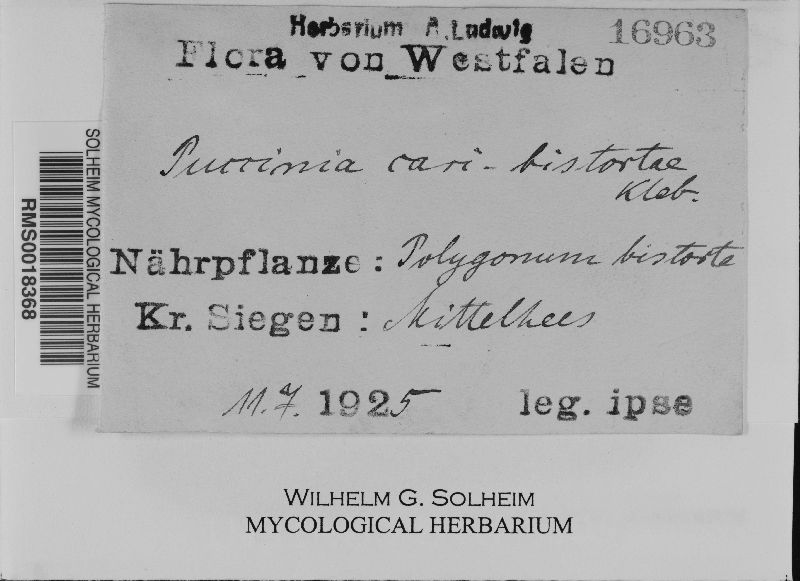 Herbarium A. Ludwig
16963
Flora von Westfalen
Puccinia cari-bistortae
Kleb.
Nährpflanze: Polygonum bistorta
Kr. Siegen: Mittelhees
11.7.1925 leg. ipse
SOLHEIM MYCOLOGICAL HERBARIUM
RMS0018368
WILHELM G. SOLHEIM
MYCOLOGICAL HERBARIUM